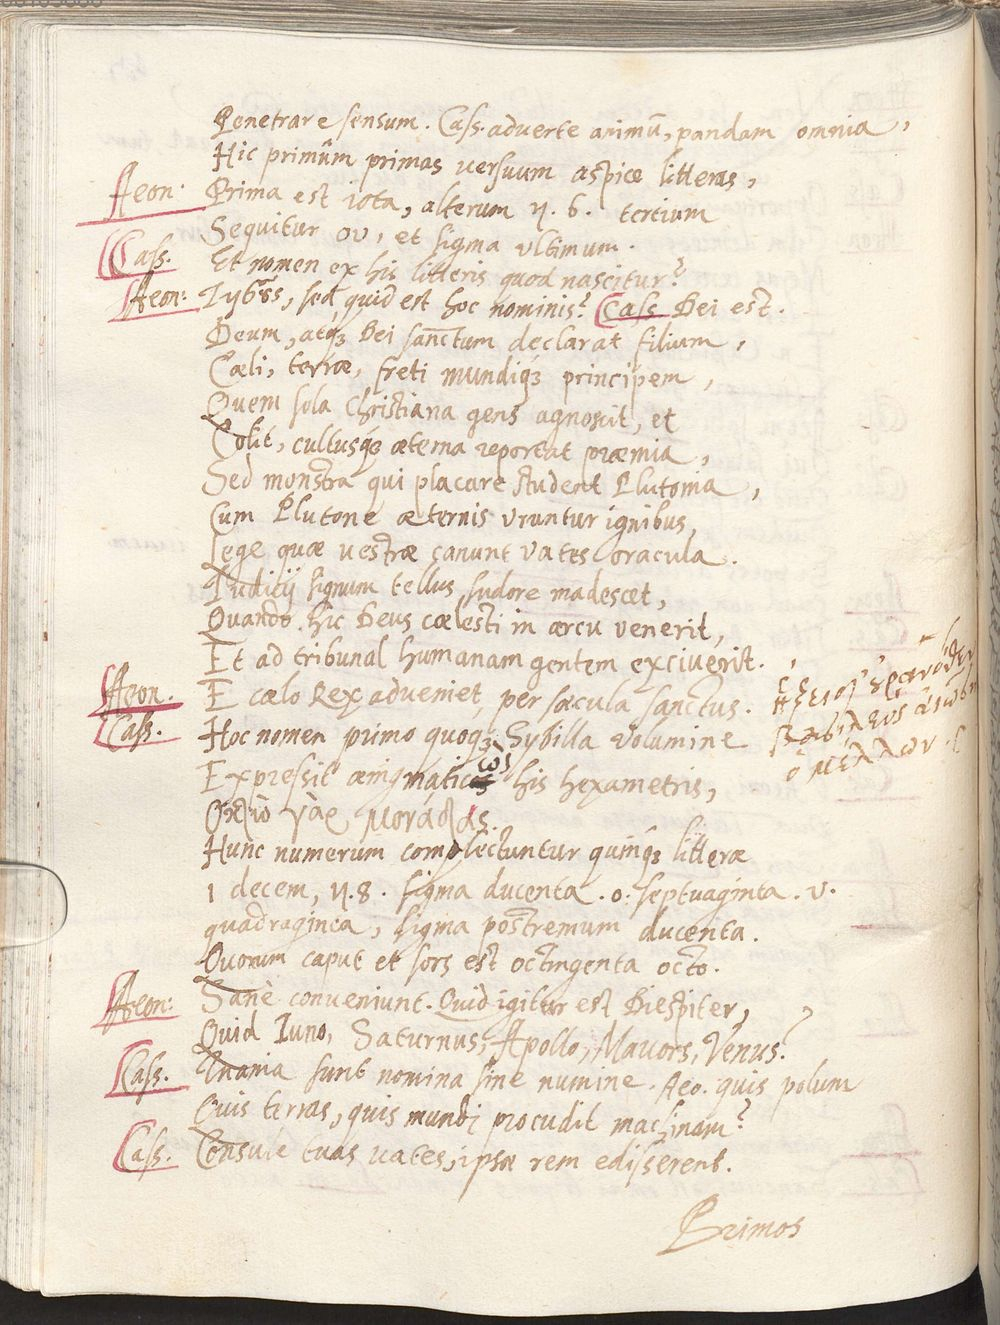 Penetrare sensum. Cass. adverte animū, pandam omnia,
Hic primùm primas versuum aspice litteras,
Aeon: Prima est iota, alterum η. 6. tertium
Sequitur ου, et sigma ultimum.
Cass. Et nomen ex his litteris quod nascitur?
Aeon: sed quid est hoc nominis? Cass Dei est.
Deum, atq; Dei sanctum declarat filium,
Cæli, terræ, freti mundiq; principem,
Quem sola Christiana gens agnoscit, et
Colit, cultusq; æterna reportat præmia,
Sed monstra qui placare student Plutonia,
Cum Plutone æternis uruntur ignibus,
Lege quæ vestræ canunt vates oracula.
Iudicij signum tellus, sudore madescet,
Quando hic Deus cælesti in arcu venerit,
Et ad tribunal humanam gentem exciverit.
Aeon. E cælo Rex adveniet, per sæcula sanctus.
ἥξει οὐρανόθεν
βασιλεὺς αἰῶσιν
ὁ μέλλων.
Cass. Hoc nomen primo quoq; Sybilla volumine
Expressit ænigmaticῶς his hexametris,
Ὀκτὼ γὰρ μονάδας.
Hunc numerum complectuntur quinq; litteræ
I decem, η. 8. sigma ducenta. o: septuaginta. v.
quadraginta, sigma postremum ducenta.
Quorum caput et sors est octingenta octo.
Aeon: Sanè conveniunt. Quid igitur est Diespiter,
Quid Iuno, Saturnus, Apollo, Mavors, Venus?
Cass. Inania sunt nomina sine numine. Aeo. quis polum
Quis terras, quis mundi procudit machinam?
Cass. Consule tuas vates, ipsæ rem edisserent.
Primos